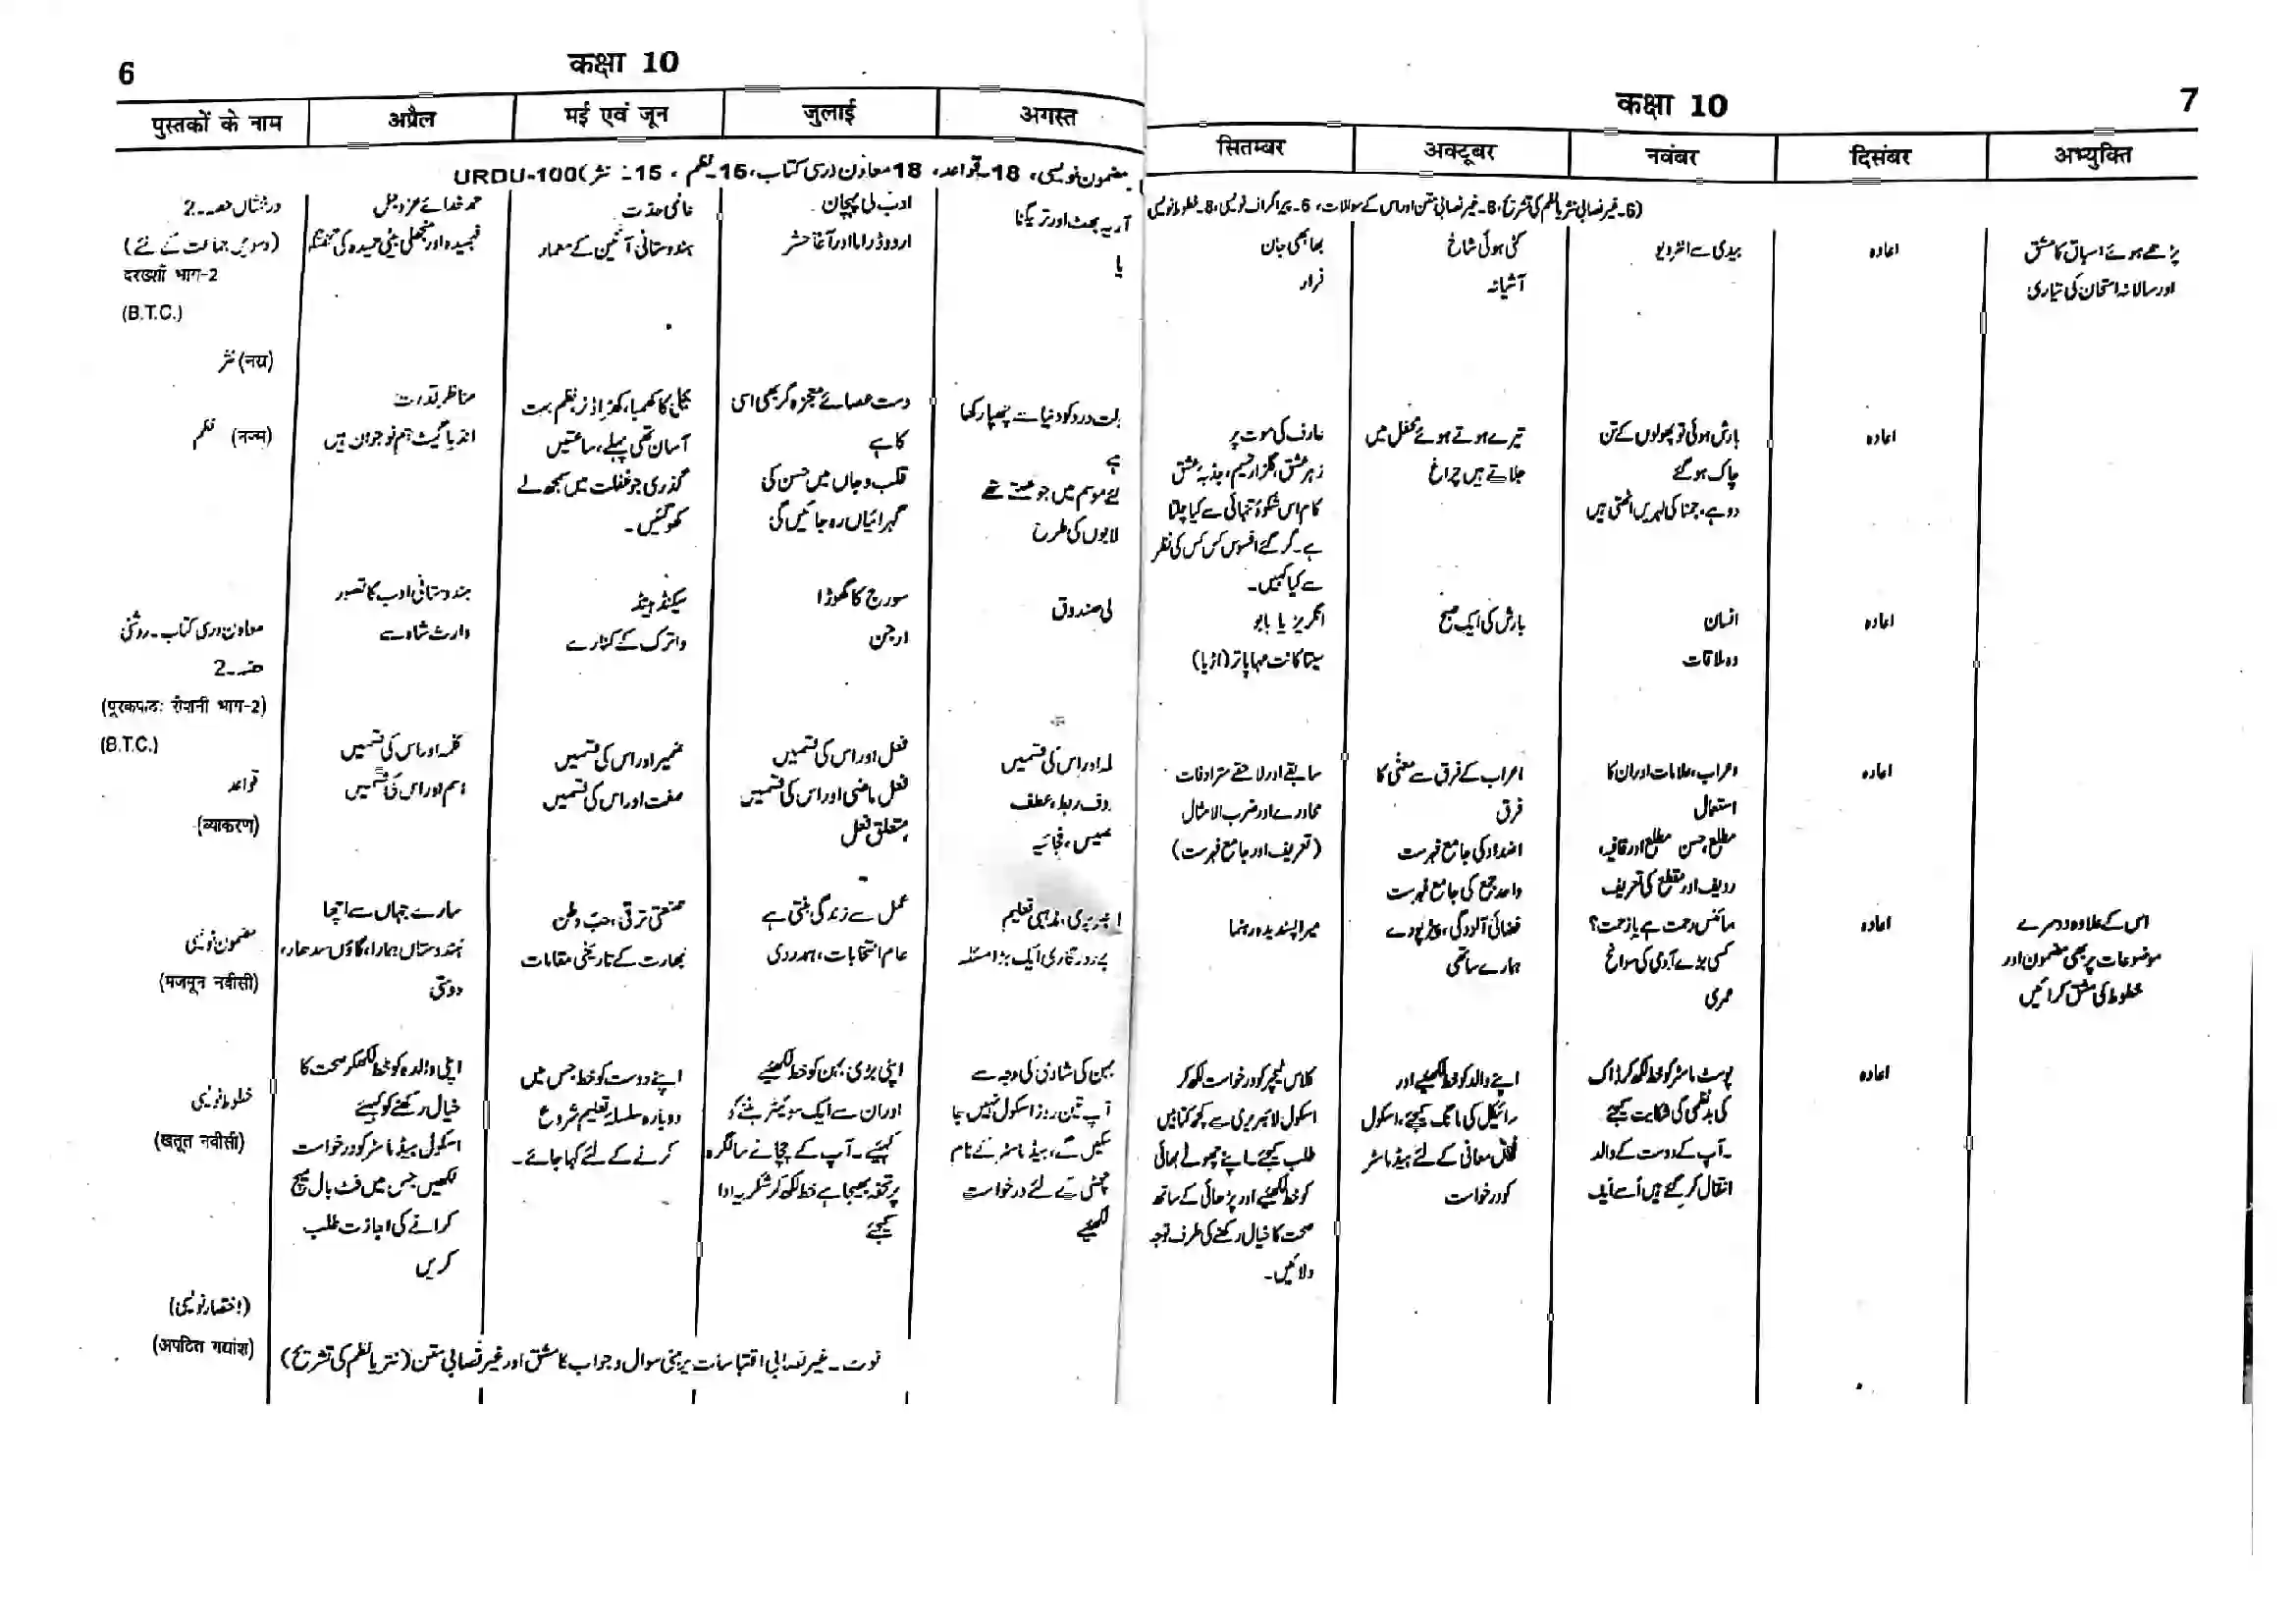 6
कक्षा 10
पुस्तकों के नाम
अप्रैल
मई एवं जून
जुलाई
अगस्त
URDU-100 (نثر -15، نظم -15، معاون دری کتاب 18، قواعد -18، مضمون نویسی
درخشاں حصہ -2
(دسویں جماعت کے لئے)
दरख्शाँ भाग-2
(B.T.C.)
(नस्र) نثر
حمد خدائے عزوجل
فہمیدہ اور منجھلی بیٹی حمیدہ کی گفتگو
ہندوستانی آئین کے معمار
ادب کی پہچان
اردو ڈراما اور آغا حشر
آریہ بھٹ اور تریگنا
یا
(नज्म) نظم
مناظر قدرت
انڈیا گیٹ، ہم نوجوان ہیں
بجلی کا کھمبا،
آسان تھی پہلے، ساعتیں
گذری جو غفلت میں مجھ لے
کھو گئیں۔
دست عصائے معجزہ گر بھی اسی
کا ہے
قلب و جاں میں حسن کی
گہرائیاں رہ جائیں گی
درد کو دنیا سے چھپا رکھا
ہے
موسم میں جو
لابوں کی طرح
معاون دری کتاب۔ روشنی
حصہ -2
(पूरकपाठः रोशनी भाग-2)
(B.T.C.)
ہندوستانی ادب کا تصور
وارث شاہ سے
سیکنڈ ہینڈ
واترک کے کنارے
سورج کا گھوڑا
ارجن
لی صندوق
قواعد
(व्याकरण)
کلمہ اور اس کی قسمیں
اسم اور اس کی قسمیں
ضمیر اور اس کی قسمیں
صفت اور اس کی قسمیں
فعل اور اس کی قسمیں
فعل ماضی اور اس کی قسمیں
متعلق فعل
اور اس کی قسمیں
وف ربط، عطف
فجائیہ
مضمون نویسی
(मजमून नवीसी)
سارے جہاں سے اچھا
ہندوستاں ہمارا، گاؤں سدھار،
دوستی
صنعتی ترقی، حب وطن
بھارت کے تاریخی مقامات
عمل سے زندگی بنتی ہے
عام انتخابات، ہمدردی
مذہبی تعلیم
ایک بڑا مسئلہ
خطوط نویسی
(खतूत नवीसी)
اپنی والدہ کو خط لکھ کر صحت کا
خیال رکھنے کو کہئے
اسکولی ہیڈ ماسٹر کو درخواست
لکھیں جس میں فٹ بال میچ
کرانے کی اجازت طلب
کریں
اپنے دوست کو خط جس میں
دوبارہ سلسلہ تعلیم شروع
کرنے کے لئے کہا جائے۔
اپنی بڑی بہن کو خط لکھئے
اور ان سے ایک سوئیٹر بننے کو
کہئے۔ آپ کے چچا نے سالگرہ
پر تحفہ بھیجا ہے خط لکھ کر شکریہ ادا
کیجئے
بہن کی شادی کی وجہ سے
آپ تین روز اسکول نہیں جا
سکیں گے، ہیڈ ماسٹر کے نام
چھٹی کے لئے درخواست
لکھئے
(اختصار نویسی)
(अपठित गद्यांश)
نوٹ۔ غیر نصابی اقتباسات پر مبنی سوال و جواب کا مشق اور غیر نصابی متن (نثر یا نظم کی تشریح)
कक्षा 10
7
सितम्बर
अक्टूबर
नवंबर
दिसंबर
अभ्युक्ति
(6۔ غیر نصابی نثر یا نظم کی تشریح، 8۔ غیر نصابی متن اور اس کے سوالات، 6۔ پیراگراف نویسی، 8۔ خطوط نویسی
بھابھی جان
فرار
کٹی ہوئی شاخ
آشیانہ
بیدی سے انٹرویو
اعادہ
پڑھے ہوئے اسباق کا مشق
اور سالانہ امتحان کی تیاری
عارف کی موت پر
زہر عشق، گلزار نسیم، جذبہ عشق
کام اس شکوۂ تنہائی سے کیا چلتا
ہے۔ گر گئے افسوس کس کس کی نظر
سے کیا کہیں۔
تیرے ہوتے ہوئے محفل میں
جلاتے ہیں چراغ
بارش ہوئی تو پھولوں کے تن
چاک ہو گئے
دوہے، جمنا کی لہریں اٹھتی ہیں
اعادہ
انگریزیا بابو
سیتا کانت مہاپاتر (اڑیا)
بارش کی ایک صبح
انسان
دو ملاقات
اعادہ
سابقے اور لاحقے مترادفات
محاورے اور ضرب الامثال
(تعریف اور جامع فہرست)
اعراب کے فرق سے معنی کا
فرق
اضداد کی جامع فہرست
واحد جمع کی جامع فہرست
اعراب، علامات اور ان کا
استعمال
مطلع، حسن مطلع اور قافیہ،
ردیف اور مقطع کی تعریف
اعادہ
میرا پسندیدہ رہنما
فضائی آلودگی، پیڑ پودے
ہمارے ساتھی
سائنس رحمت ہے یا زحمت؟
کسی بڑے آدمی کی سوانح
عمری
اعادہ
اس کے علاوہ دوسرے
موضوعات پر بھی مضمون اور
خطوط کی مشق کرائیں
کلاس ٹیچر کو درخواست لکھ کر
اسکول لائبریری سے کچھ کتابیں
طلب کیجئے۔ اپنے چھوٹے بھائی
کو خط لکھئے اور پڑھائی کے ساتھ
صحت کا خیال رکھنے کی طرف توجہ
دلائیں۔
اپنے والد کو خط لکھئے اور
سائیکل کی مانگ کیجئے، اسکول
فیس معافی کے لئے ہیڈ ماسٹر
کو درخواست
پوسٹ ماسٹر کو خط لکھ کر ڈاک
کی بدنظمی کی شکایت کیجئے
۔آپ کے دوست کے والد
انتقال کر گئے ہیں اسے ایک
اعادہ